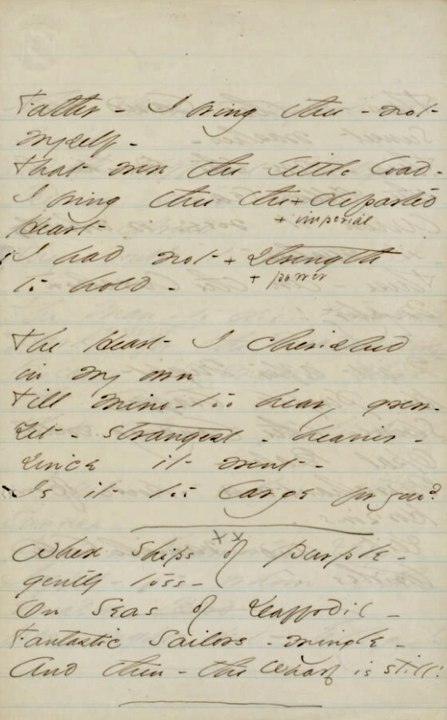 Father - I bring thee - not
myself -
That were the little load -
I bring thee the + departed
Heart -
+ imperial
I had not + strength
to hold -
+ power
The Heart I cherished
in my own
Till mine - too heavy grew -
Yet - strangest - heavier -
since it went -
Is it too large for you?
x x
When Ships of purple -
gently toss -
On Seas of Daffodil -
Fantastic Sailors - mingle -
And then - the Wharf is still!